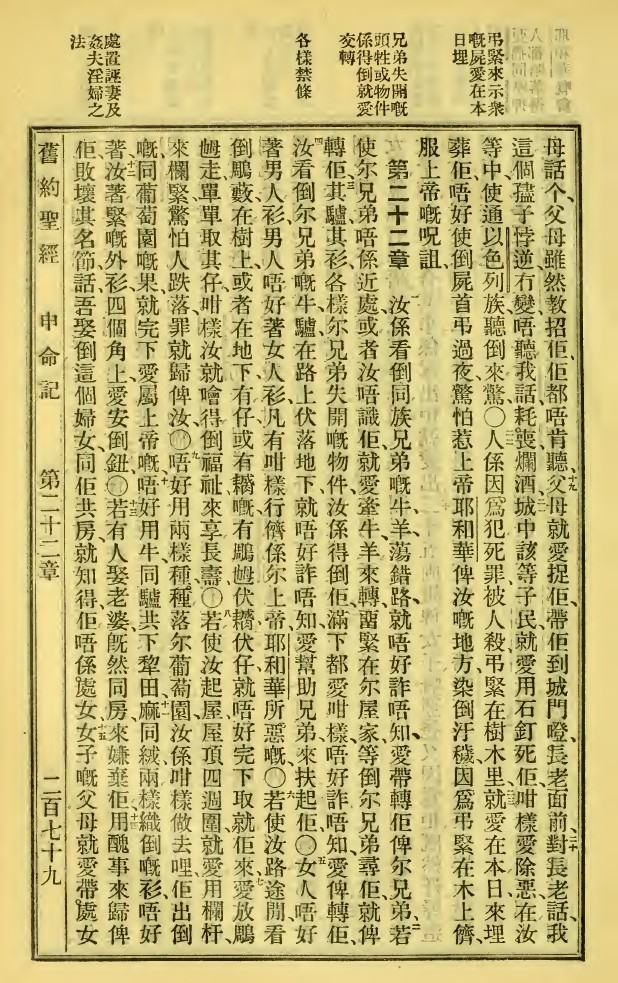 弔緊來示衆
嘅屍愛在本
日埋
兄弟失開嘅
頭牲或物件
係得倒就愛
交轉
各樣禁條
處置誣妻及
姦夫淫婦之
法
母話个父母雖然教招佢佢都唔肯聽十九父母就愛捉佢帶佢到城門墱長老面前二十對長老話我
這個孻子悖逆冇變唔聽我話耗喪爛酒二一城中該等子民就愛用石釘死佢咁樣愛除惡在汝
等中使通以色列族聽倒來驚〇二二人係因爲犯死罪被人殺弔緊在樹木里二三就愛在本日來埋
葬佢唔好使倒屍首弔過夜驚怕惹上帝耶和華俾汝嘅地方染倒汙穢因爲弔緊在木上儕
服上帝嘅呪詛
第二十二章 一汝係看倒同族兄弟嘅牛羊蕩錯路就唔好詐唔知愛帶轉佢俾尔兄弟二若
使尔兄弟唔係近處或者汝唔識佢就愛牽牛羊來轉畜緊在尔屋家等倒尔兄弟尋佢就俾
轉佢三其驢其衫各樣尔兄弟失開嘅物件汝係得倒佢滿下都愛咁樣唔好詐唔知愛俾轉佢
四汝看倒尔兄弟嘅牛驢在路上伏落地下就唔好詐唔知愛幫助兄弟來扶起佢〇五女人唔好
著男人衫男人唔好著女人衫凡有咁樣行儕係尔上帝耶和華所惡嘅〇六若使汝路途閒看
倒鵰藪在樹上或者在地下有仔或有䨻嘅有鵰乸伏䨻伏仔就唔好完下取就佢來七愛放鵰
乸走單單取其仔咁樣汝就噲得倒福祉來享長壽〇八若使汝起屋屋頂四週圍就愛用欄杆
來欄緊驚怕人跌落罪就歸俾汝〇九唔好用兩樣種種落尔葡萄園汝係咁樣做去哩佢出倒
嘅同葡萄園嘅果就完下愛屬上帝嘅十唔好用牛同驢共下犂田十一麻同絨兩樣織倒嘅衫唔好
著十二汝著緊嘅外衫四個角上愛安倒鈕〇十三若有人娶老婆既然同房來嫌棄佢十四用醜事來歸俾
佢敗壞其名節話吾娶倒這個婦女同佢共房就知得佢唔係處女十五女子嘅父母就愛帶處女
舊約聖經 申命記 第二十二章 二百七十九